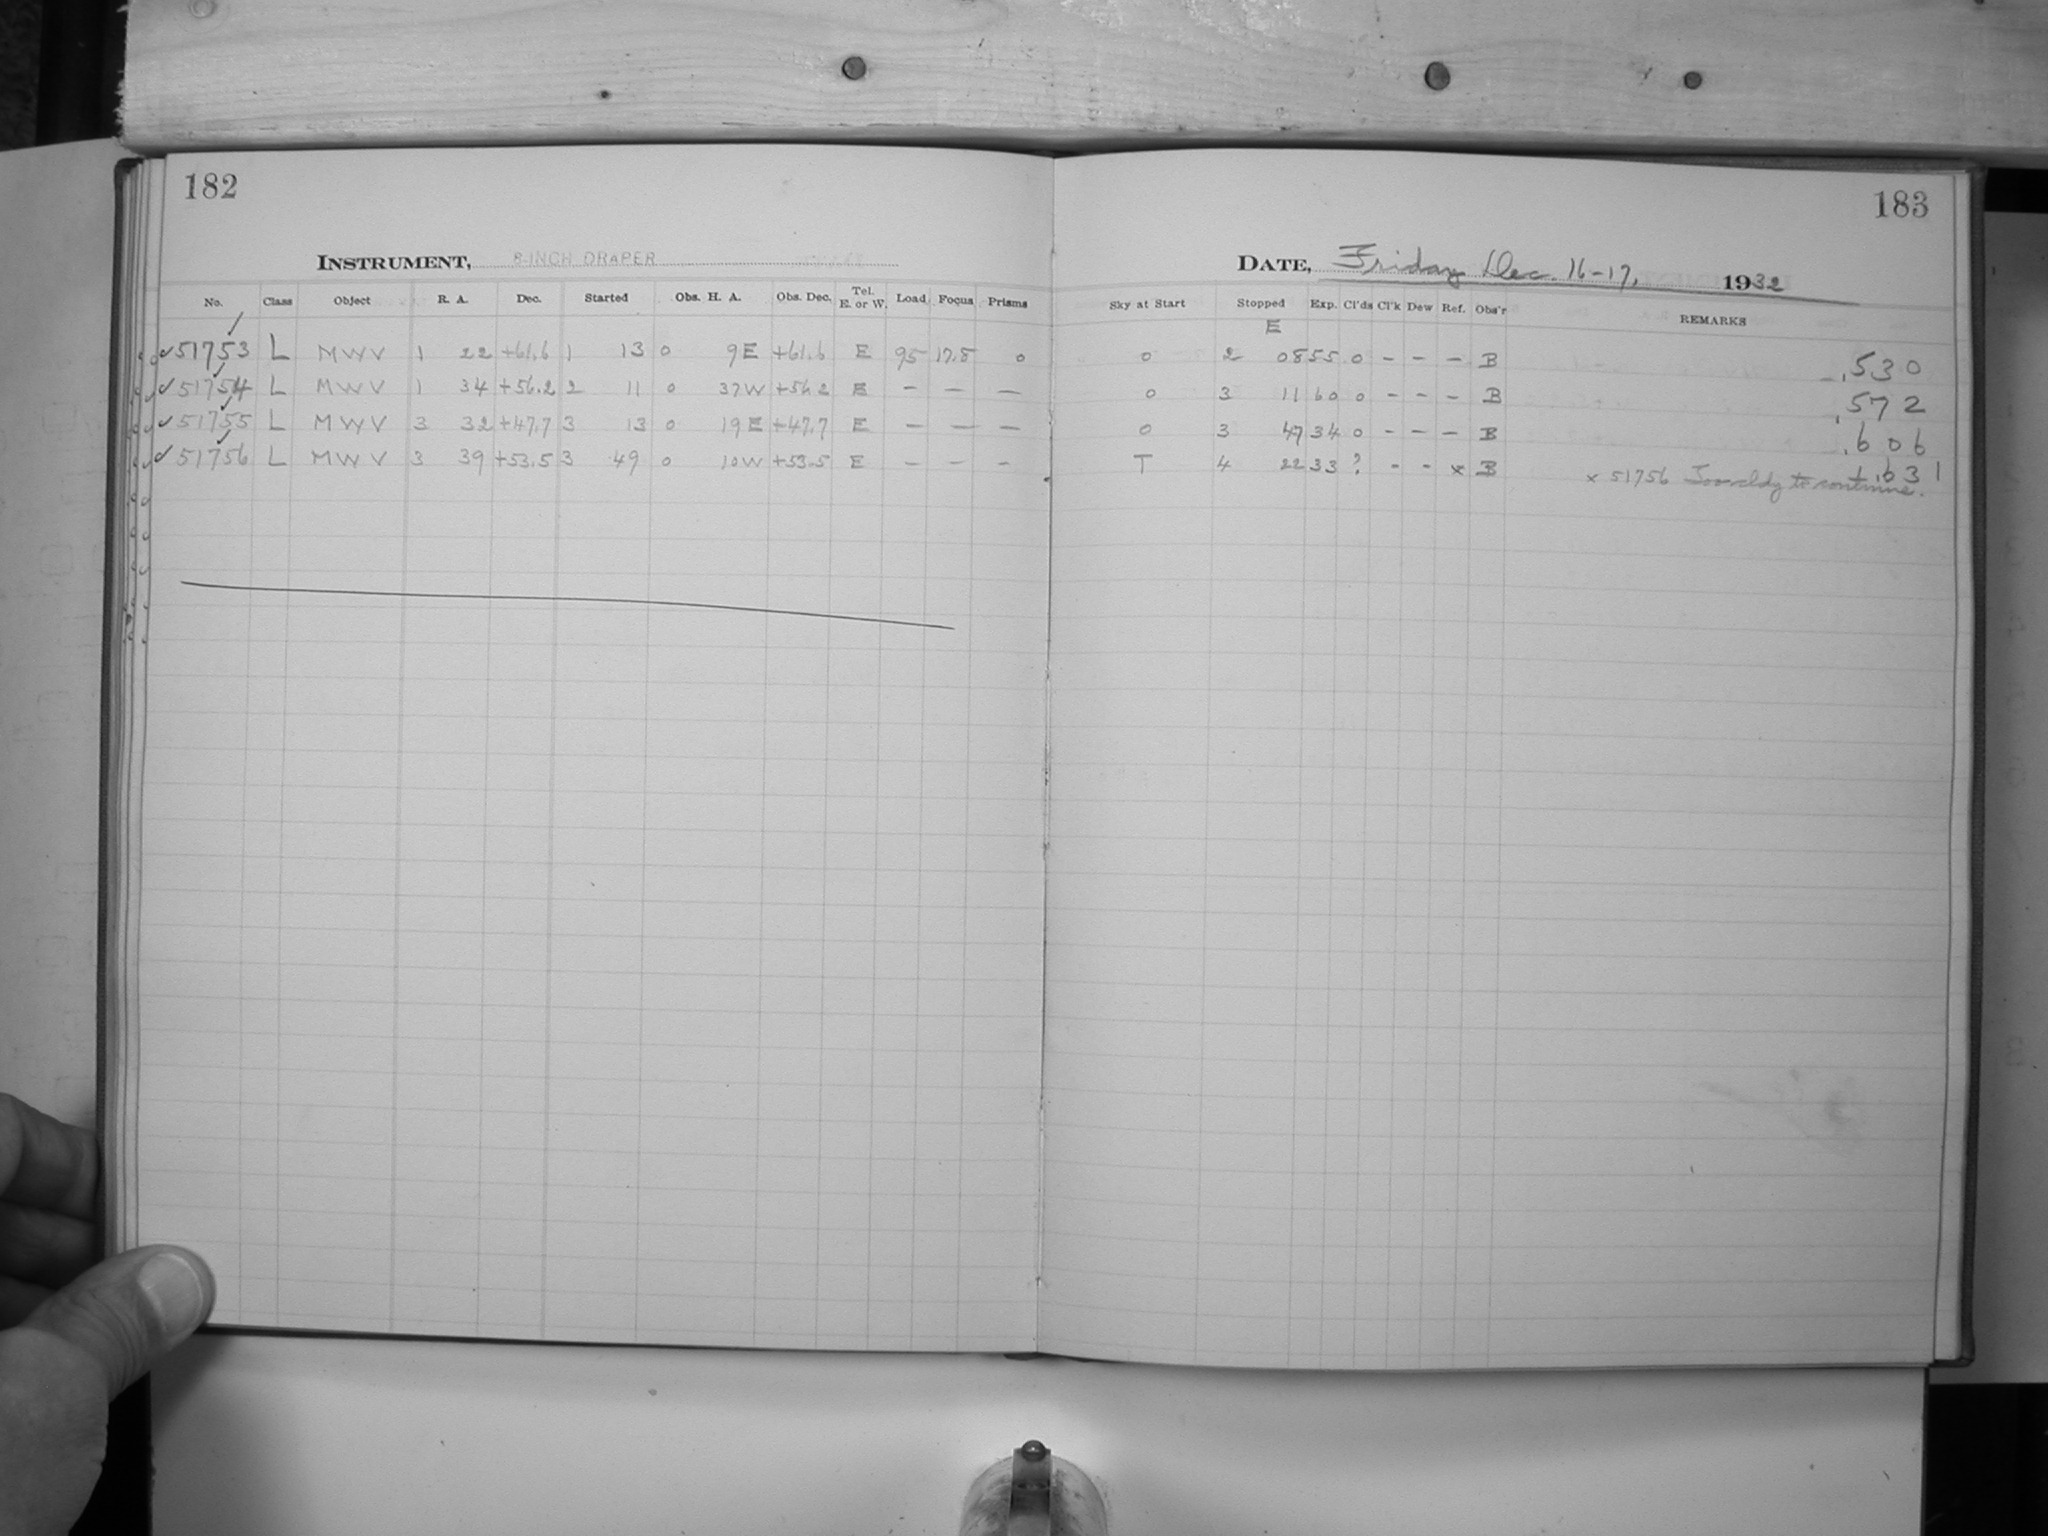 182
INSTRUMENT, 8-INCH DRAPER
No. Class Object R. A. Dec. Started Obs. H. A. Obs. Dec. Tel. E. or W. Load Focus Prisms
✓51753 L MWV 1 22 +61.6 1 13 0 9E +61.6 E 95 17.8 0
✓51754 L MWV 1 34 +56.2 2 11 0 37W +56.2 E – – –
✓51755 L MWV 3 32 +47.7 3 13 0 19E +47.7 E – – –
✓51756 L MWV 3 39 +53.5 3 49 0 10W +53.5 E – – –
183
DATE, Friday Dec. 16-17, 1932
Sky at Start Stopped Exp. Cl'ds Cl'k Dew Ref. Obs'r REMARKS
E
0 2 08 55 0 – – – B .530
0 3 11 60 0 – – – B .572
0 3 47 34 0 – – – B .606
T 4 22 33 ? – – x B .631
x 51756 Too cldy to continue.